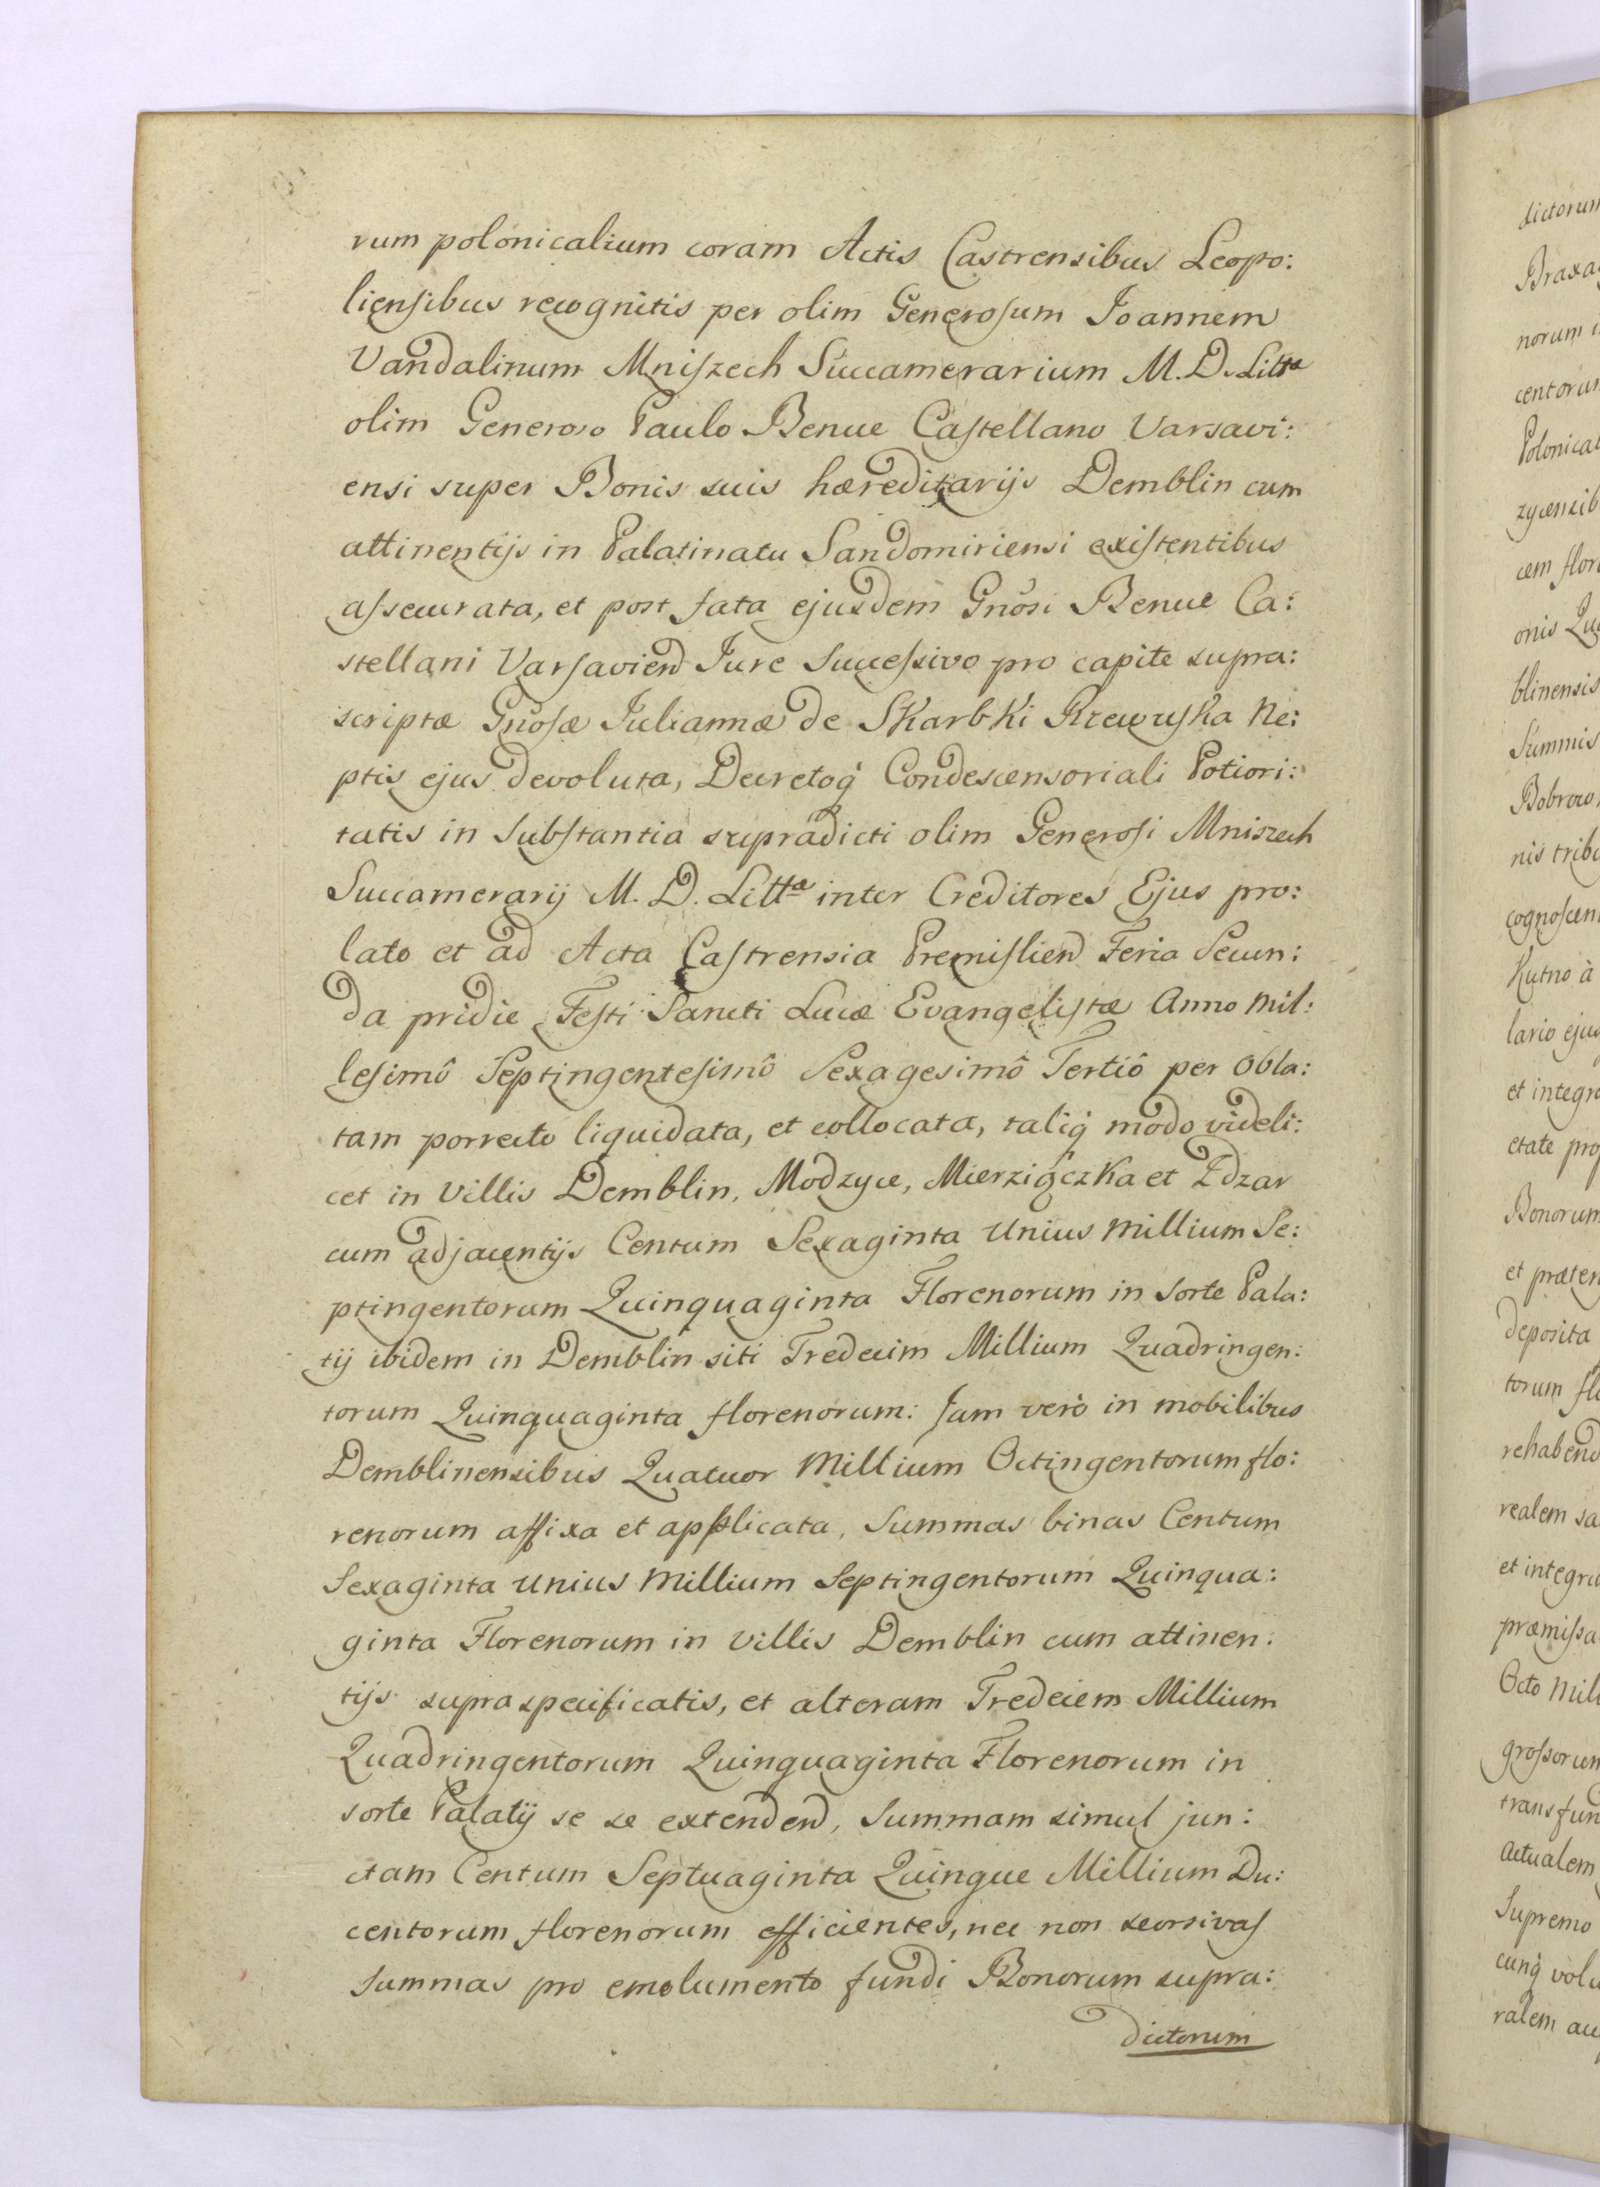 rum polonicalium coram Actis Castrensibus Leopo:
liensibus recognitis per olim Generosum Joannem
Vandalinum Mniszech Succamerarium M. D. Littæ
olim Generoso Paulo Benue Castellano Varsavi:
ensi super Bonis suis hæreditarijs Demblin cum
attinentijs in Palatinatu Sandomiriensi existentibus
assecurata, et post fata ejusdem Gnosi Benue Ca:
stellani Varsavien Jure Successivo pro capite supra:
scriptæ Gnosæ Juliannæ de Skarbki Rzewuska Ne:
ptis ejus devoluta, Decretoq́ Condescensoriali Potiori:
tatis in Substantia supradicti olim Generosi Mniszech
Succamerarij M. D. Littæ inter Creditores Ejus pro:
lato et ad Acta Castrensia Premislien Feria Secun:
da pridie Festi Sancti Lucæ Evangelistæ Anno Mil:
lesimô Septingentesimô Sexagesimô Tertiô per Obla:
tam porrecto liquidata, et collocata, taliq́ modo videli:
cet in Villis Demblin, Modzyce, Mierziączka et Zdzar
cum adjacentijs Centum Sexaginta Unius Millium Se:
ptingentorum Quinquaginta Florenorum in Sorte Pala:
tij ibidem in Demblin siti Tredecim Millium Quadringen:
torum Quinquaginta florenorum: Jam verò in mobilibus
Demblinensibus Quatuor Millium Octingentorum flo:
renorum affixa et applicata, Summas binas Centum
Sexaginta Unius Millium Septingentorum Quinqua:
ginta Florenorum in Villis Demblin cum attinen:
tijs supraspecificatis, et alteram Tredeciem Millium
Quadringentorum Quinquaginta Florenorum in
sorte Palatij se se extenden, Summam simul jun:
ctam Centum Septuaginta Quinque Millium Du:
centorum florenorum efficientes, nec non seorsivas
Summas pro emolumento fundi Bonorum supra:
dictorum
dictorum
Braxa
norum
centorum
Polonical
zycensib
cem flor
onis Qu
blinensis
Summis
Bobrow
nis trib
cognoscen
Kutno à
lario ejus
et integr
etate pro
Bonorum
et præten
deposita
torum fl
rehabend
realem sa
et integr
præmissa
Octo Mil
grossorum
transfun
actualem
Supremo
cunq́ volu
ralem au